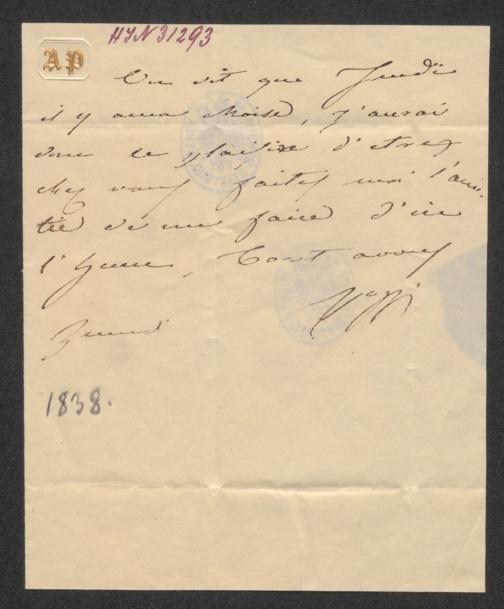 AP
HIN 31293
On dit que Jeudi
il y aura Moise, j'aurai
donc le plaisir d'etre
chez vous faites moi l'ami-
tié de me faire dire
l'heure, Tout a vous
Lundi
1838.